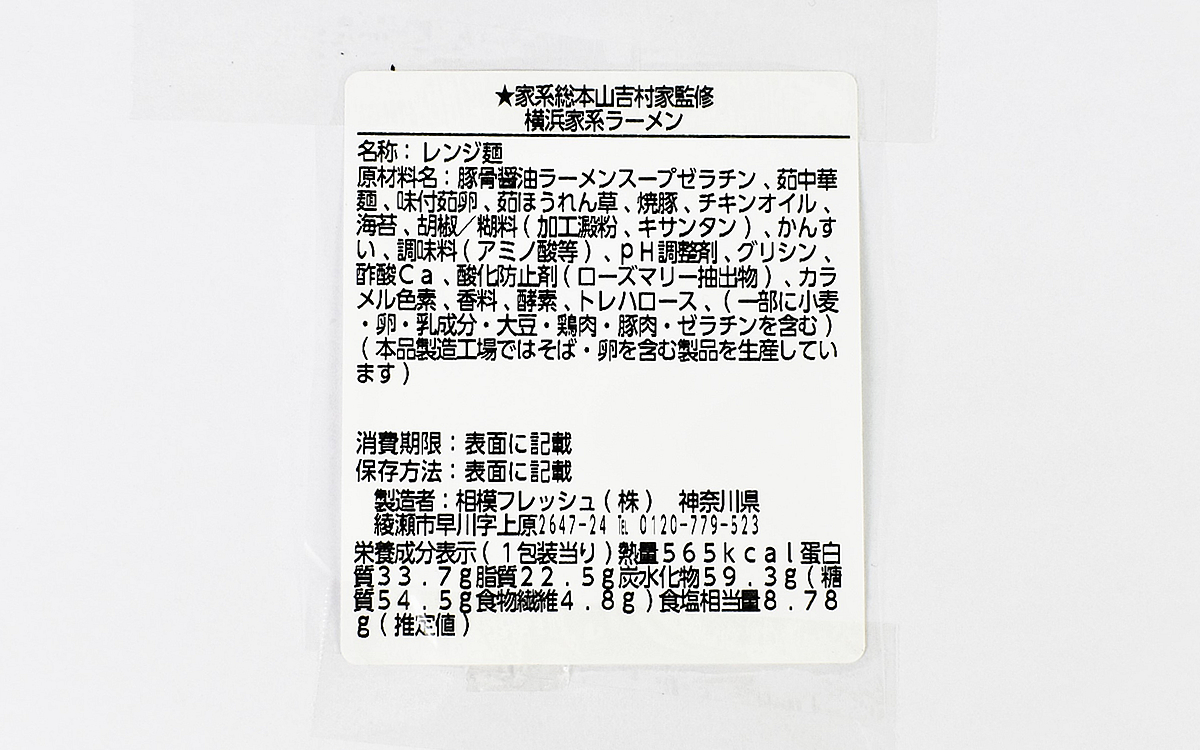 ★家系総本山吉村家監修
横浜家系ラーメン
名称：レンジ麺
原材料名：豚骨醤油ラーメンスープゼラチン、茹中華
麺、味付茹卵、茹ほうれん草、焼豚、チキンオイル、
海苔、胡椒／糊料（加工澱粉、キサンタン）、かんす
い、調味料（アミノ酸等）、ｐＨ調整剤、グリシン、
酢酸Ｃａ、酸化防止剤（ローズマリー抽出物）、カラ
メル色素、香料、酵素、トレハロース、（一部に小麦
・卵・乳成分・大豆・鶏肉・豚肉・ゼラチンを含む）
（本品製造工場ではそば・卵を含む製品を生産してい
ます）
消費期限：表面に記載
保存方法：表面に記載
製造者：相模フレッシュ（株）　神奈川県
綾瀬市早川字上原2647-24 ℡ 0120-779-523
栄養成分表示（１包装当り）熱量５６５ｋｃａｌ蛋白
質３３．７ｇ脂質２２．５ｇ炭水化物５９．３ｇ（糖
質５４．５ｇ食物繊維４．８ｇ）食塩相当量８．７８
ｇ（推定値）